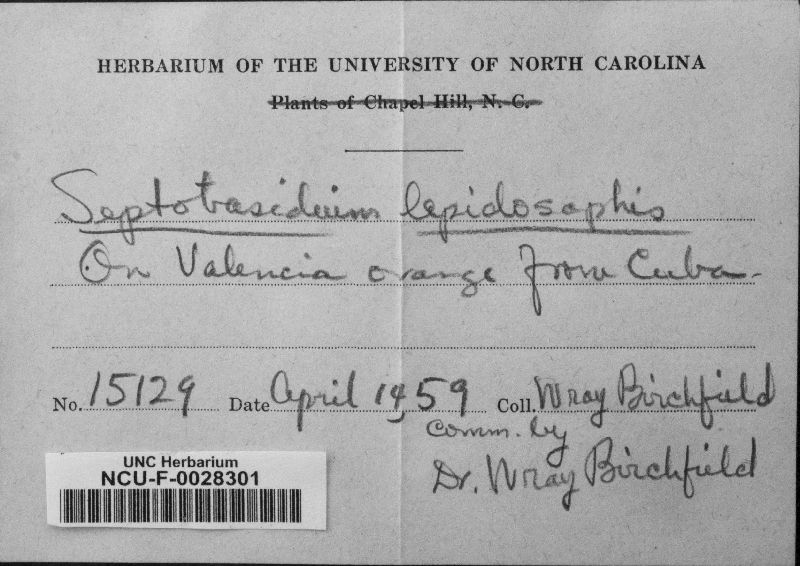 HERBARIUM OF THE UNIVERSITY OF NORTH CAROLINA
Plants of Chapel Hill, N. C.
Septobasidium lepidosaphis
On Valencia orange from Cuba
No. 15129 Date April 1959 Coll. Wray Birchfield
Comm. by
Dr. Wray Birchfield
UNC Herbarium
NCU-F-0028301